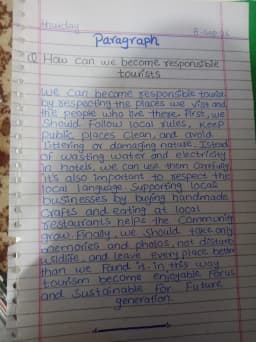 Thursday
Paragraph
Q How can we become responsible
tourists
We can become responsible tourist
by respecting the places we visit and
the people who live there. First, we
should follow local rules, keep
public places clean, and avoid
littering or damaging nature. Istead
of wasting water and electricity
in hotels, we can use them carefully
It's also important to respect the
local language. Supporting local
businesses by buying handmade
crafts and eating at local
restaurants helps the community
grow. Finally, we should take only
memories and photos, not disturb
wildlife, and leave every place better
than we found it. in this way
tourism become enjoyable for us
and sustainable for future
generation.